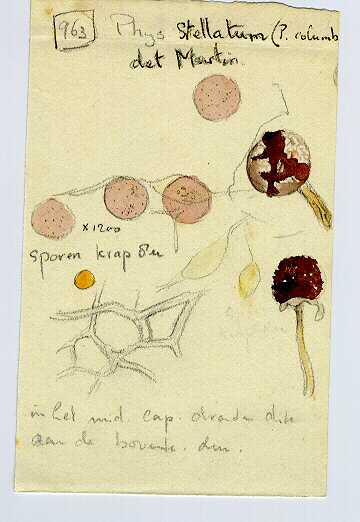 963 Phys Stellatum (P. columb
det Martin.
x 1200
sporen krap 8u
in het mid. cap. draden dik
aan de bovente. dun.